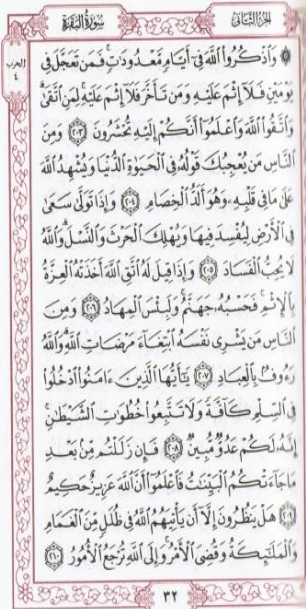 الجزء الثاني سورة البقرة
الحزب
٤
۞ وَٱذْكُرُوا۟ ٱللَّهَ فِىٓ أَيَّامٍ مَّعْدُودَٰتٍ فَمَن تَعَجَّلَ فِى
يَوْمَيْنِ فَلَآ إِثْمَ عَلَيْهِ وَمَن تَأَخَّرَ فَلَآ إِثْمَ عَلَيْهِ لِمَنِ ٱتَّقَىٰ
وَٱتَّقُوا۟ ٱللَّهَ وَٱعْلَمُوٓا۟ أَنَّكُمْ إِلَيْهِ تُحْشَرُونَ ٢٠٣ وَمِنَ
ٱلنَّاسِ مَن يُعْجِبُكَ قَوْلُهُۥ فِى ٱلْحَيَوٰةِ ٱلدُّنْيَا وَيُشْهِدُ ٱللَّهَ
عَلَىٰ مَا فِى قَلْبِهِۦ وَهُوَ أَلَدُّ ٱلْخِصَامِ ٢٠٤ وَإِذَا تَوَلَّىٰ سَعَىٰ
فِى ٱلْأَرْضِ لِيُفْسِدَ فِيهَا وَيُهْلِكَ ٱلْحَرْثَ وَٱلنَّسْلَ وَٱللَّهُ
لَا يُحِبُّ ٱلْفَسَادَ ٢٠٥ وَإِذَا قِيلَ لَهُ ٱتَّقِ ٱللَّهَ أَخَذَتْهُ ٱلْعِزَّةُ
بِٱلْإِثْمِ فَحَسْبُهُۥ جَهَنَّمُ وَلَبِئْسَ ٱلْمِهَادُ ٢٠٦ وَمِنَ
ٱلنَّاسِ مَن يَشْرِى نَفْسَهُ ٱبْتِغَآءَ مَرْضَاتِ ٱللَّهِ وَٱللَّهُ
رَءُوفٌۢ بِٱلْعِبَادِ ٢٠٧ يَٰٓأَيُّهَا ٱلَّذِينَ ءَامَنُوا۟ ٱدْخُلُوا۟
فِى ٱلسِّلْمِ كَآفَّةً وَلَا تَتَّبِعُوا۟ خُطُوَٰتِ ٱلشَّيْطَٰنِ
إِنَّهُۥ لَكُمْ عَدُوٌّ مُّبِينٌ ٢٠٨ فَإِن زَلَلْتُم مِّنۢ بَعْدِ
مَا جَآءَتْكُمُ ٱلْبَيِّنَٰتُ فَٱعْلَمُوٓا۟ أَنَّ ٱللَّهَ عَزِيزٌ حَكِيمٌ
٢٠٩ هَلْ يَنظُرُونَ إِلَّآ أَن يَأْتِيَهُمُ ٱللَّهُ فِى ظُلَلٍ مِّنَ ٱلْغَمَامِ
وَٱلْمَلَٰٓئِكَةُ وَقُضِىَ ٱلْأَمْرُ وَإِلَى ٱللَّهِ تُرْجَعُ ٱلْأُمُورُ ٢١٠
٣٢